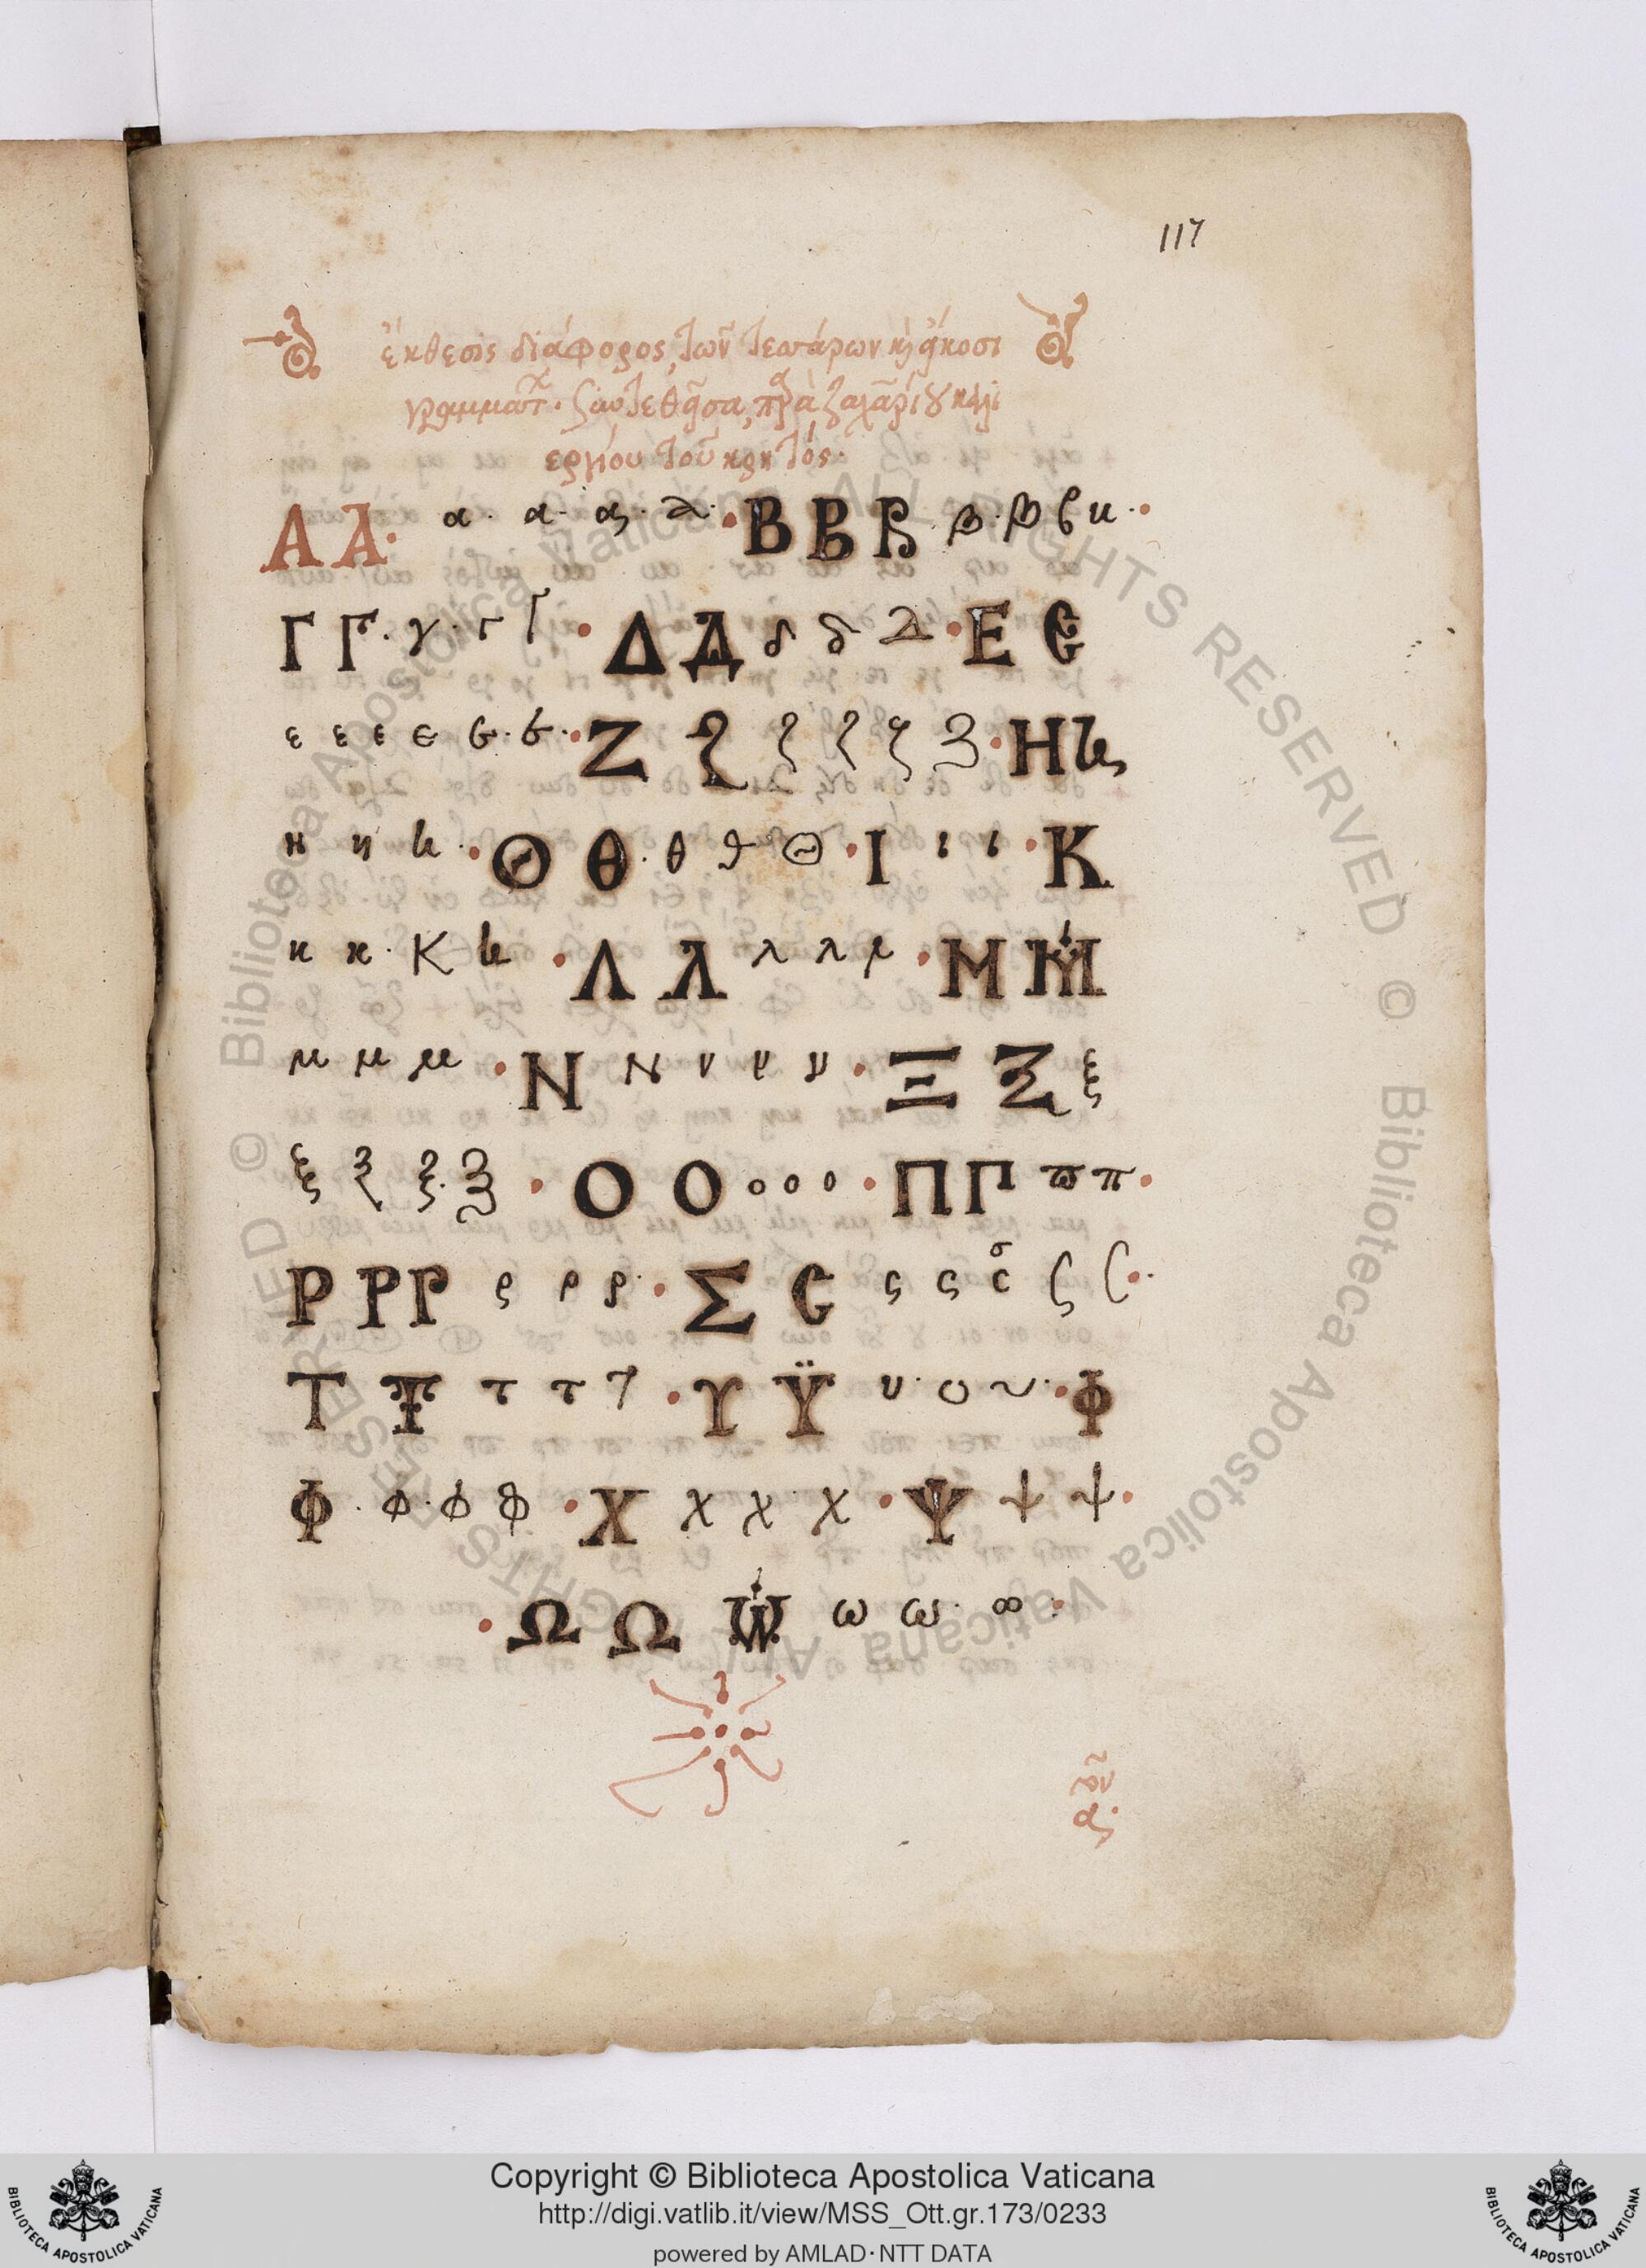 117
ἔκθεσις διάφορος, τῶν τεσσάρων κὶ εἴκοσι
γραμματ
ερμίου τοῦ κρητός·
Α Α · α · α · α · α · Β Β Β β · β β υ ·
Γ Γ · γ · Γ Γ · Δ Δ δ δ Δ · Ε Ε
ε ε ε ε ε · ε · Ζ Ζ ζ ζ ζ ζ · Η η
η η η · Θ Θ · θ θ Θ · Ι ι ι · Κ
κ κ · Κ κ · Λ Λ λ λ λ · Μ Μ
μ μ μ · Ν Ν ν ν ν · Ξ Ξ ξ
ξ ξ ξ · ξ · Ο Ο ο ο ο · Π Π ϖ π ·
Ρ Ρ Ρ ρ ρ ρ · Σ C ς ς c σ ς ς ·
Τ Τ τ τ τ · Υ Ϋ υ · υ υ · Φ
Φ · φ · φ φ · Χ χ χ χ · Ψ ψ ψ ·
· Ω Ω Ѡ ω ω · ω ·
Copyright © Biblioteca Apostolica Vaticana
http://digi.vatlib.it/view/MSS_Ott.gr.173/0233
powered by AMLAD·NTT DATA
BIBLIOTECA APOSTOLICA VATICANA
BIBLIOTECA APOSTOLICA VATICANA
© Biblioteca Apostolica Vaticana ALL RIGHTS RESERVED
© Biblioteca Apostolica Vaticana ALL RIGHTS RESERVED